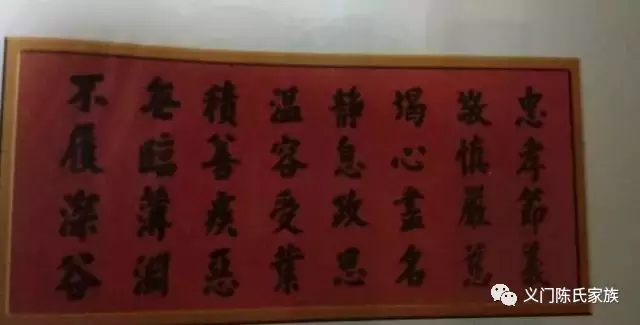 忠孝節義
敬慎嚴慈
竭心盡名
静息政思
温容受業
積善疾惡
每臨薄淵
不履深谷
义门陈氏家族